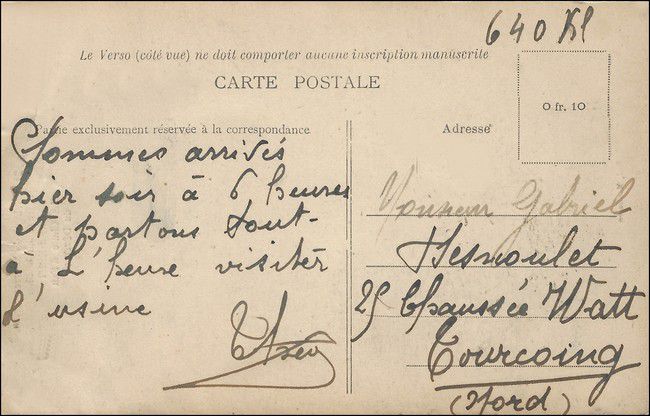 640
Le Verso (côté vue) ne doit comporter aucune inscription manuscrite
CARTE POSTALE
0 fr. 10
Partie exclusivement réservée à la correspondance
Adresse
Sommes arrivés
hier soir à 6 heures
et partons tout-
à L'heure visiter
l'usine
Monsieur Gabriel
Hesnoulet
25 Chaussée Watt
Tourcoing
(Nord)